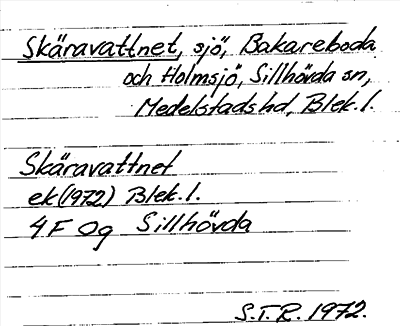 Skäravattnet, sjö, Bakareboda
och Holmsjö, Sillhövda sn,
Medelstads hd, Blek. l.
Skäravattnet
ek (1972) Blek. l.
4 F 0g Sillhövda
S.T.R. 1972.